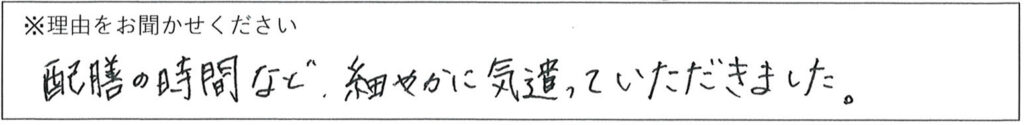 ※理由をお聞かせください
配膳の時間など、細やかに気遣っていただきました。